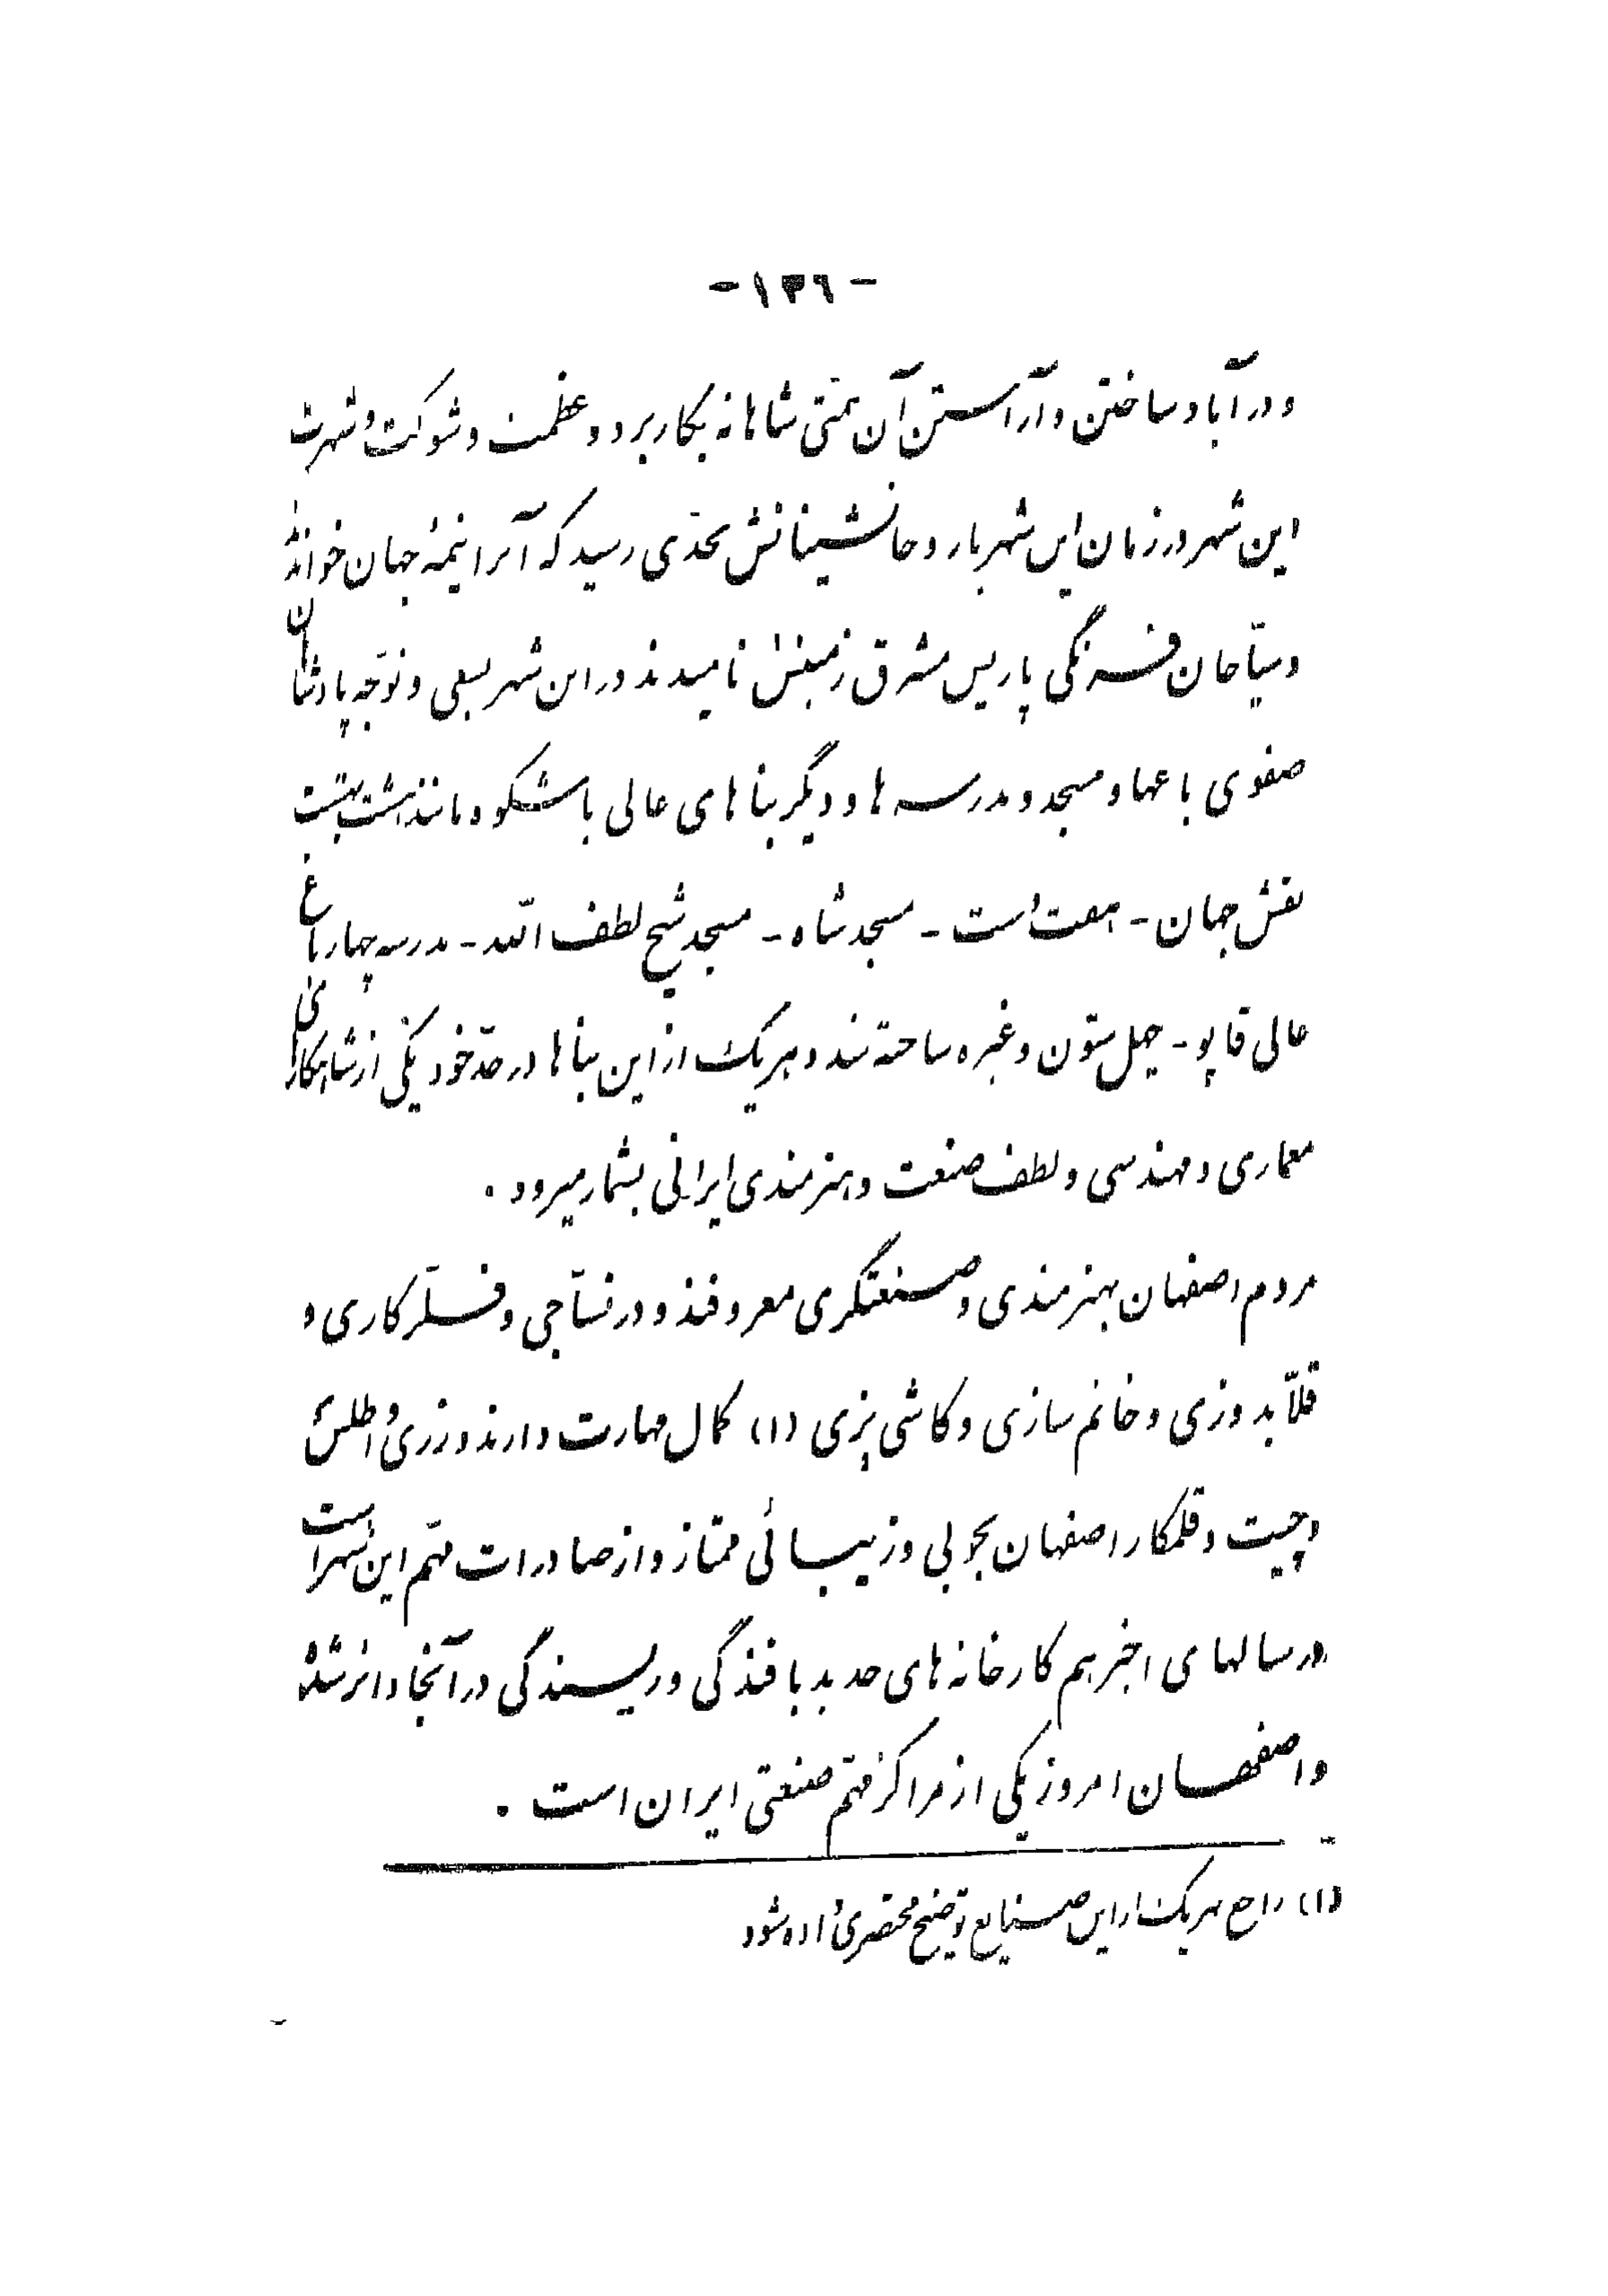 -١٣٦-
و در آباد ساختن و آراستن آن همّتی شاهانه بکار برد و عظمت و شوکت و شهرت
این شهر در زمان این شهریار و جانشینانش بحدّی رسید که آنرا نیمهٔ جهان خواندند
و سیّاحان فرنگی پاریس مشرق زمینش نامیدند در این شهر بسعی و توجّه پادشاهان
صفوی باغها و مسجد و مدرسه ها و دیگر بناهای عالی باشکوه مانند هشت بهشت
نقش جهان - هفت دست - مسجد شاه - مسجد شیخ لطف الله - مدرسه چهارباغ
عالی قاپو - چهل ستون و غیره ساخته شد و هر یک از این بناها در حدّ خود یکی از شاهکارهای
معماری و مهندسی و لطف صنعت و هنرمندی ایرانی بشمار میرود .
مردم اصفهان بهنرمندی و صنعتگری معروفند و در نسّاجی و قلمکاری و
قلّابدوزی و خاتم سازی و کاشی پزی (١) کمال مهارت دارند و زری و اطلس
و چیت و قلمکار اصفهان بخوبی و زیبائی ممتاز و از صادرات مهّم این شهر است
در سالهای اخیر هم کارخانه های جدید بافندگی و ریسندگی در آنجا دائر شده
و اصفهان امروز یکی از مراکز مهّم صنعتی ایران است .
(١) راجع بهر یک از این صنایع توضیح مختصری داده شود